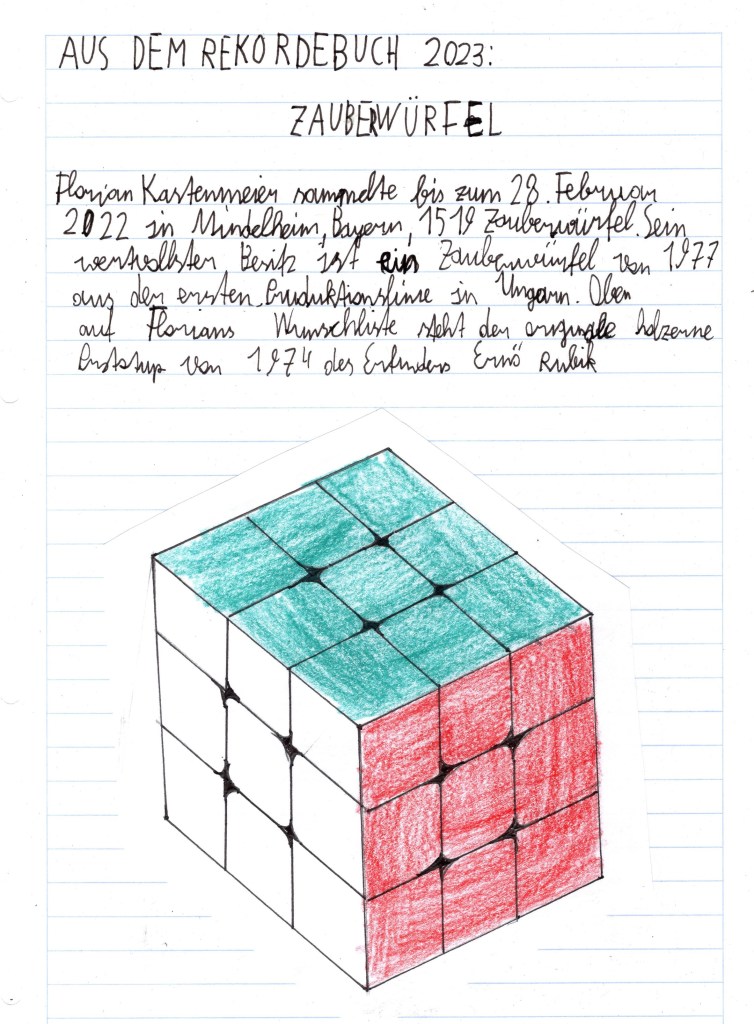 AUS DEM REKORDEBUCH 2023:
ZAUBERWÜRFEL
Florian Kastenmeier sammelte bis zum 28. Februar
2022 in Mindelheim, Bayern, 1519 Zauberwürfel. Sein
wertvollster Besitz ist ein Zauberwürfel von 1977
aus der ersten Produktionslinie in Ungarn. Oben
auf Florians Wunschliste steht der originale hölzerne
von 1974 des Erfinders Ernö Rubik